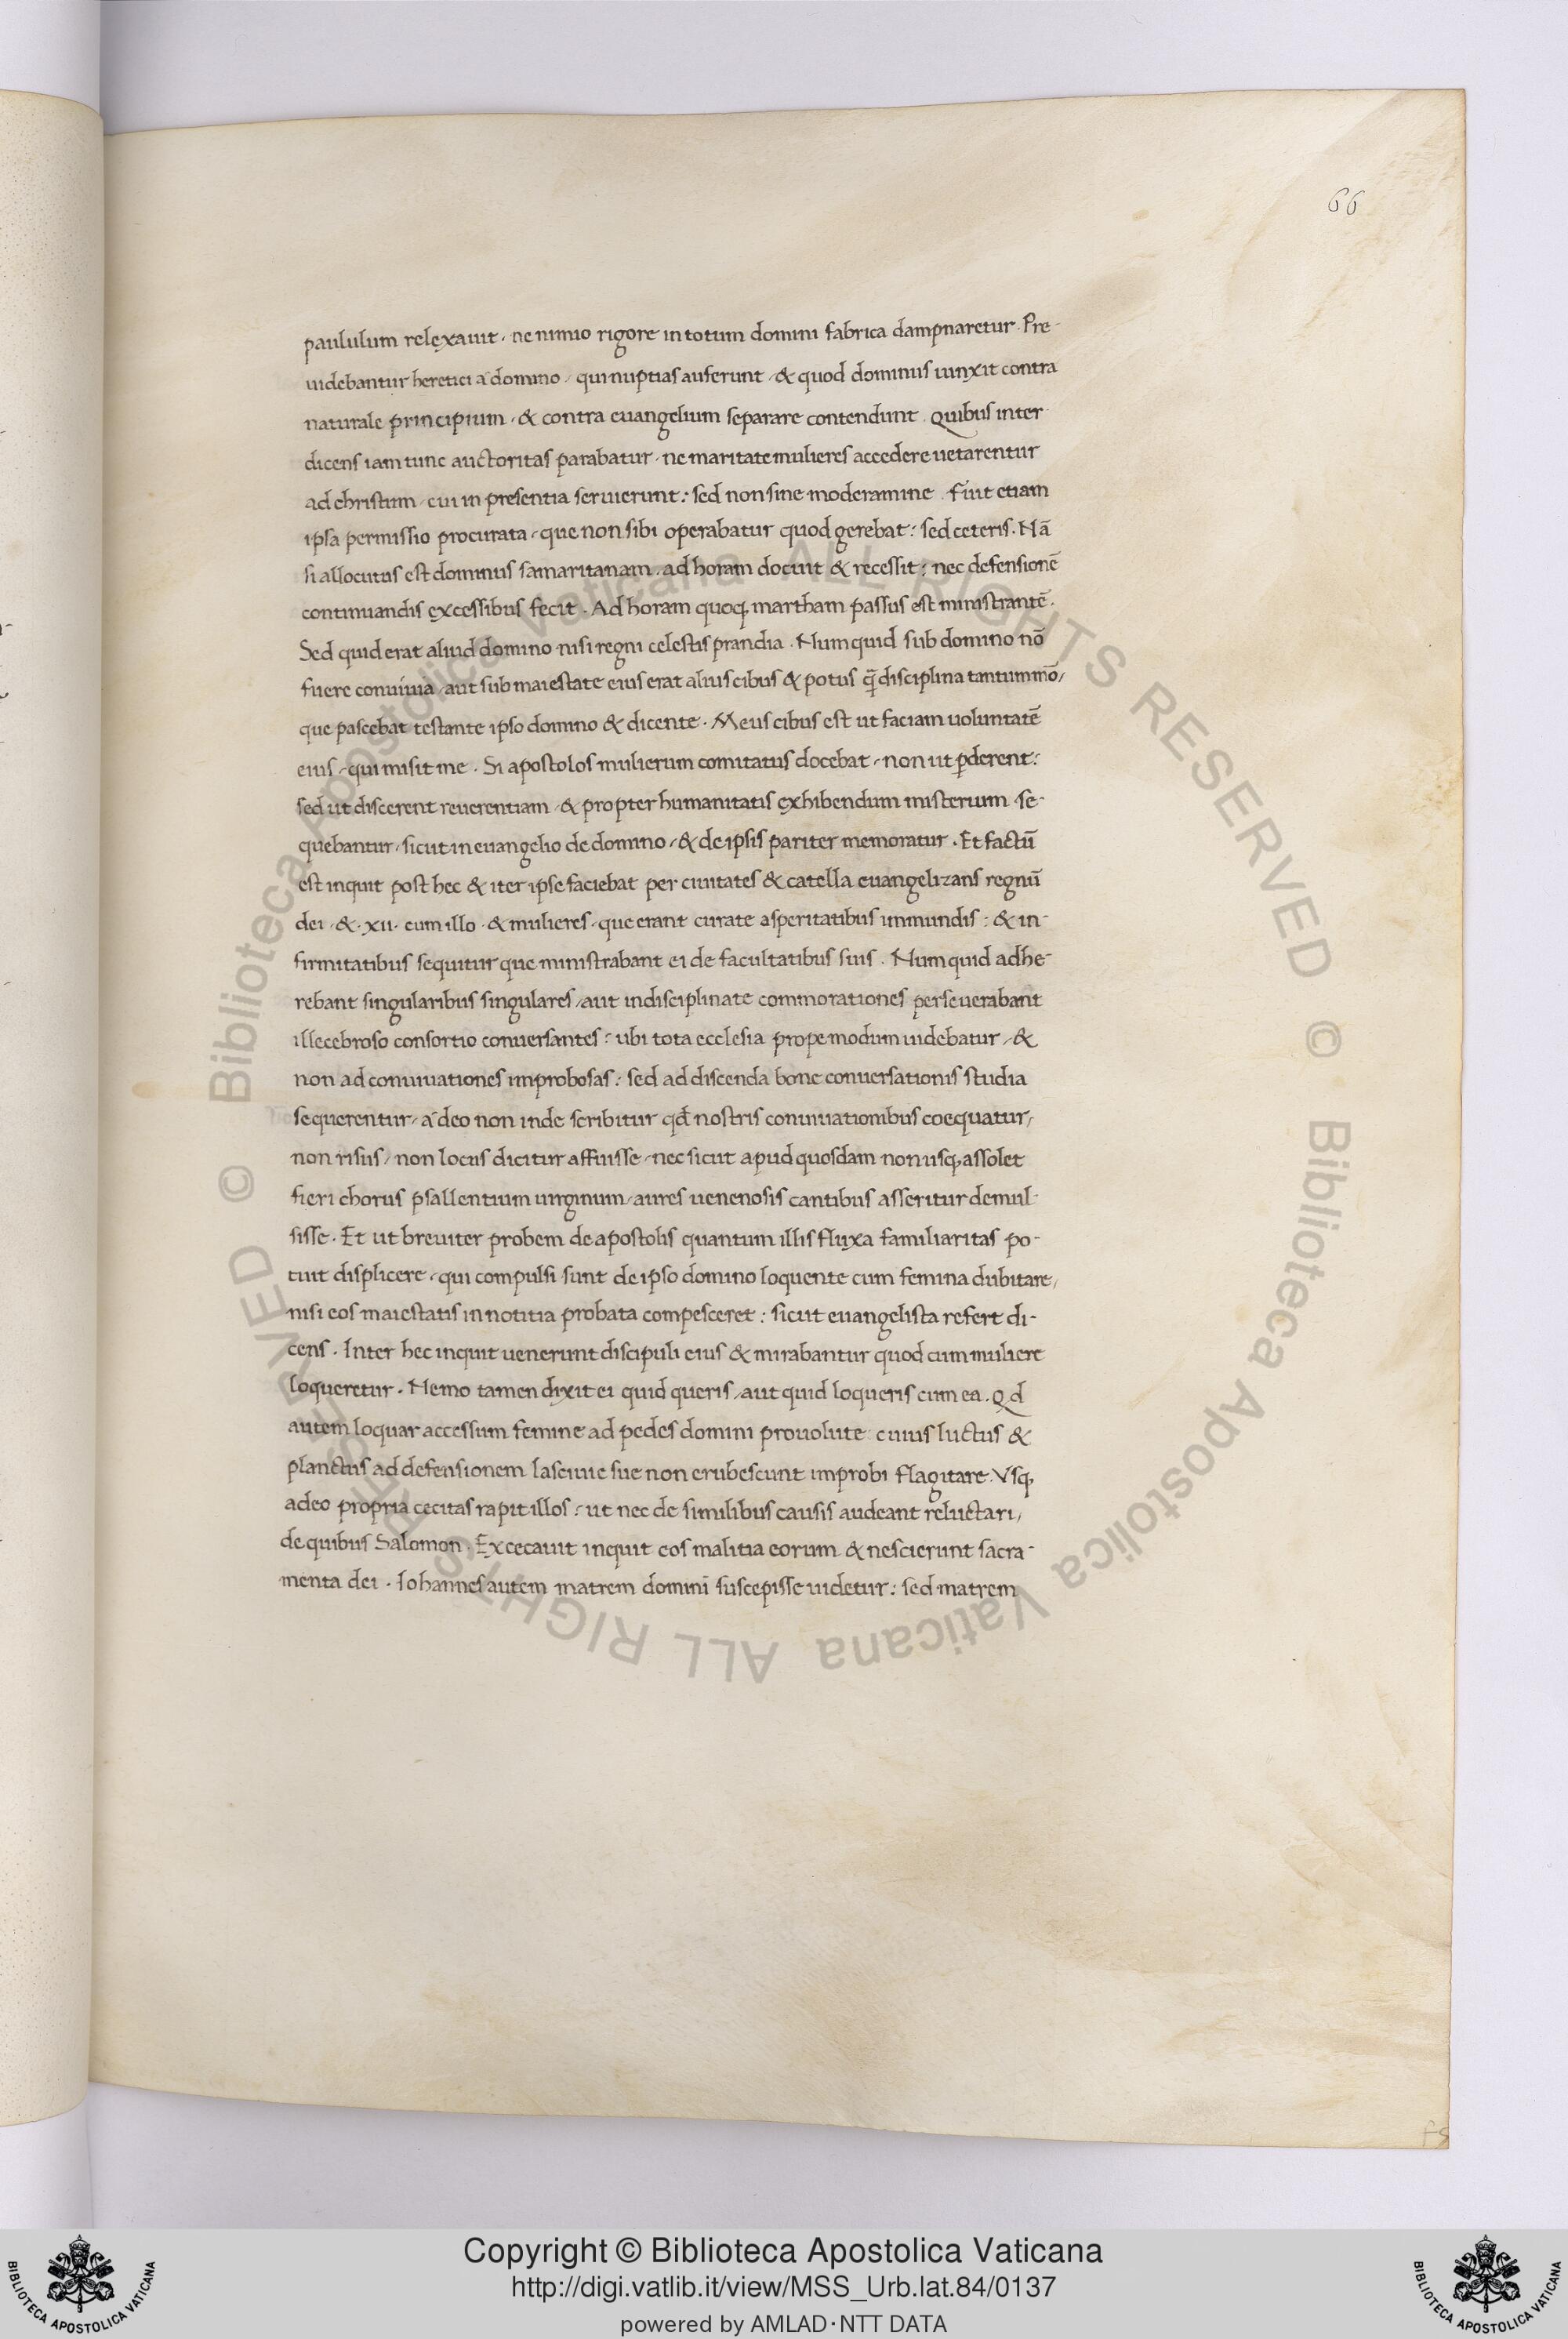 66
paululum relęxauit · ne nimio rigore in totum domini fabrica dampnaretur · Pre-
uidebantur heretici a domino · qui nuptias auferunt · & quod dominus iunxit contra
naturale principium · & contra euangelium separare contendunt . Quibus inter-
dicens iam tunc auctoritas parabatur · ne maritate mulieres accedere uetarentur
ad christum · cui in presentia seruierunt : sed non sine moderamine . Fuit etiam
ipsa permissio procurata · que non sibi operabatur quod gerebat : sed ceteris . Nā
si allocutus est dominus samaritanam . ad horam docuit & recessit : nec defensionē
continuandis excessibus fecit . Ad horam quoq; martham passus est ministrantē .
Sed quid erat aliud domino nisi regni celestis prandia . Numquid sub domino nō
fuere conuiuia / aut sub maiestate eius erat alius cibus & potus q̄ disciplina tantummō /
que pascebat testante ipso domino & dicente . Meus cibus est ut faciam uoluntatē
eius · qui misit me . Si apostolos mulierum comitatus docebat · non ut ꝑderent :
sed ut discerent reuerentiam · & propter humanitatis exhibendum misterium se-
quebantur · sicut in euangelio de domino · & de ipsis pariter memoratur . Et factū
est inquit post hec & iter ipse faciebat per ciuitates & catella euangelizans regnū
dei · & · xii · cum illo · & mulieres · que erant curate asperitatibus inmundis : & in-
firmitatibus sequitur que ministrabant ei de facultatibus suis . Numquid adhe-
rebant singularibus singulares / aut indisciplinate commorationes perseuerabant
illecebroso consortio conuersantes : ubi tota ecclesia propemodum uidebatur · &
non ad conuiuationes improbosas : sed ad discenda bone conuersationis studia
sequerentur / a deo non inde scribitur qd̄ nostris coniuuationibus coequatur /
non risus / non locus dicitur affuisse · nec sicut apud quosdam non usq; assolet
fieri chorus psallentium uirginum / aures uenenosis cantibus asseritur demul-
sisse . Et ut breuiter probem de apostolis quantum illis fluxa familiaritas po-
tuit displicere · qui compulsi sunt de ipso domino loquente cum femina dubitare /
nisi eos maiestatis in notitia probata compesceret : sicut euangelista refert di-
cens . Inter hec inquit uenerunt discipuli eius & mirabantur quod cum muliere
loqueretur . Nemo tamen dixit ei quid queris / aut quid loqueris cum ea . Qd
autem loquar accessum femine ad pedes domini prouolute cuius luctus &
planctus ad defensionem lasciuie sue non erubescunt improbi flagitare . Vsq;
adeo propria cecitas rapit illos : ut nec de similibus causis audeant reluctari /
de quibus Salomon . Excecauit inquit eos malitia eorum & nescierunt sacra-
menta dei . Iohannes autem matrem domini suscepisse uidetur : sed matrem
© Biblioteca Apostolica Vaticana ALL RIGHTS RESERVED
© Biblioteca Apostolica Vaticana ALL RIGHTS RESERVED
Copyright © Biblioteca Apostolica Vaticana
http://digi.vatlib.it/view/MSS_Urb.lat.84/0137
powered by AMLAD·NTT DATA
BIBLIOTECA APOSTOLICA VATICANA
BIBLIOTECA APOSTOLICA VATICANA